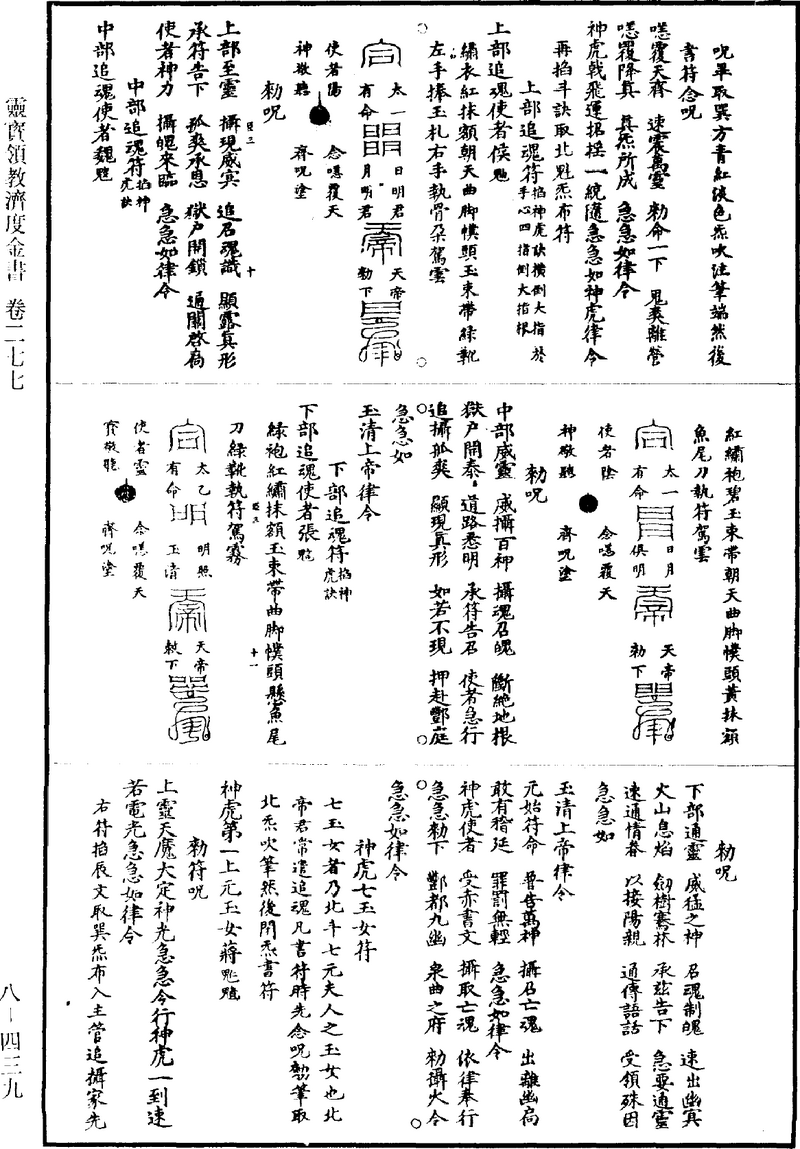 靈寶領教濟度金書 卷二七七
呪畢取巽方青紅淡色炁吹注筆端然後
書符念呪
唵覆天齊 速震萬靈 勑命一下 鬼爽離營
唵覆降真 真炁所成 急急如律令
神虎戟飛運招搖一統隨急急如神虎律令
再掐斗訣取北魁炁布符
上部追魂符掐神虎訣橫倒大指於手心四指倒大指根
上部追魂使者侯
繡衣紅抹額朝天曲脚幞頭玉束帶綠靴
左手捧玉札右手執骨朵駕雲
太一 日明君 天帝
有命 月明君 勅下
使者陽 念唵覆天
神敬聽 齊呪塗
勑呪
上部至靈 攝現威冥 追召魂識 顯露真形
承符告下 孤爽承恩 獄户開鎖 通關啓扃
使者神力 攝魄來臨 急急如律令
中部追魂符掐神虎訣
中部追魂使者魏
紅繡袍碧玉束帶朝天曲脚幞頭黃抹額
魚尾刀執符駕雲
太一 日月 天帝
有命 俱明 勅下
使者陰 念唵覆天
神敬聽 齊呪塗
勑呪
中部威靈 威攝百神 攝魂召魄 斷絶地根
獄户開泰 道路悉明 承符告召 使者急行
追攝孤爽 顯現真形 如若不現 押赴酆庭
急急如
玉清上帝律令
下部追魂符掐神虎訣
下部追魂使者張
綠袍紅繡抹額玉束帶曲脚幞頭懸魚尾
刀綠靴執符駕霧
太乙 明照 天帝
有命 玉清 敕下
使者靈 念唵覆天
寶敬聽 齊呪塗
勑呪
下部通靈 威猛之神 召魂制魄 速出幽冥
火山息焰 劒樹騫林 承玆告下 急要通靈
速通情眷 以接陽親 通傳語話 受領殊因
急急如
玉清上帝律令
元始符命 普告萬神 攝召亡魂 出離幽扃
敢有稽延 罪罰無輕 急急如律令
神虎使者 受赤書文 攝取亡魂 依律奉行
急急勑下 酆都九幽 泉曲之府 勑攝火令
急急如律令
神虎七玉女符
七玉女者乃北斗七元夫人之玉女也北
帝君常遣追魂凡書符時先念呪勑筆取
北炁吹筆然後閉炁書符
神虎第一上元玉女蔣
勑符呪
上靈天魔大定神光急急令行神虎一到速
若電光急急如律令
右符掐辰文取巽炁布入主管追攝家先
八－四三九